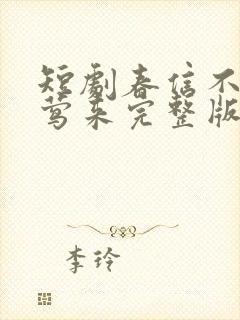 短劇春信不
莺来完整版
李玲